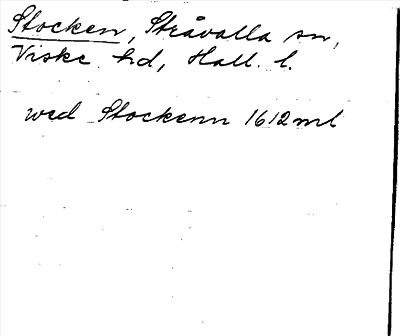 Stocken, Stråvalla sn,
Viske hd, Hall. l.
wed Stockenn 1612 ml